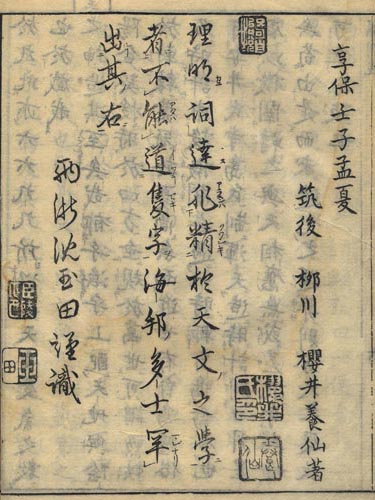 享保壬子孟夏
筑後 栁川 櫻井養仙著
理明詞達非精於天文之學
者不能道隻字海邦多士罕
出其右
浙沈玉田謹識